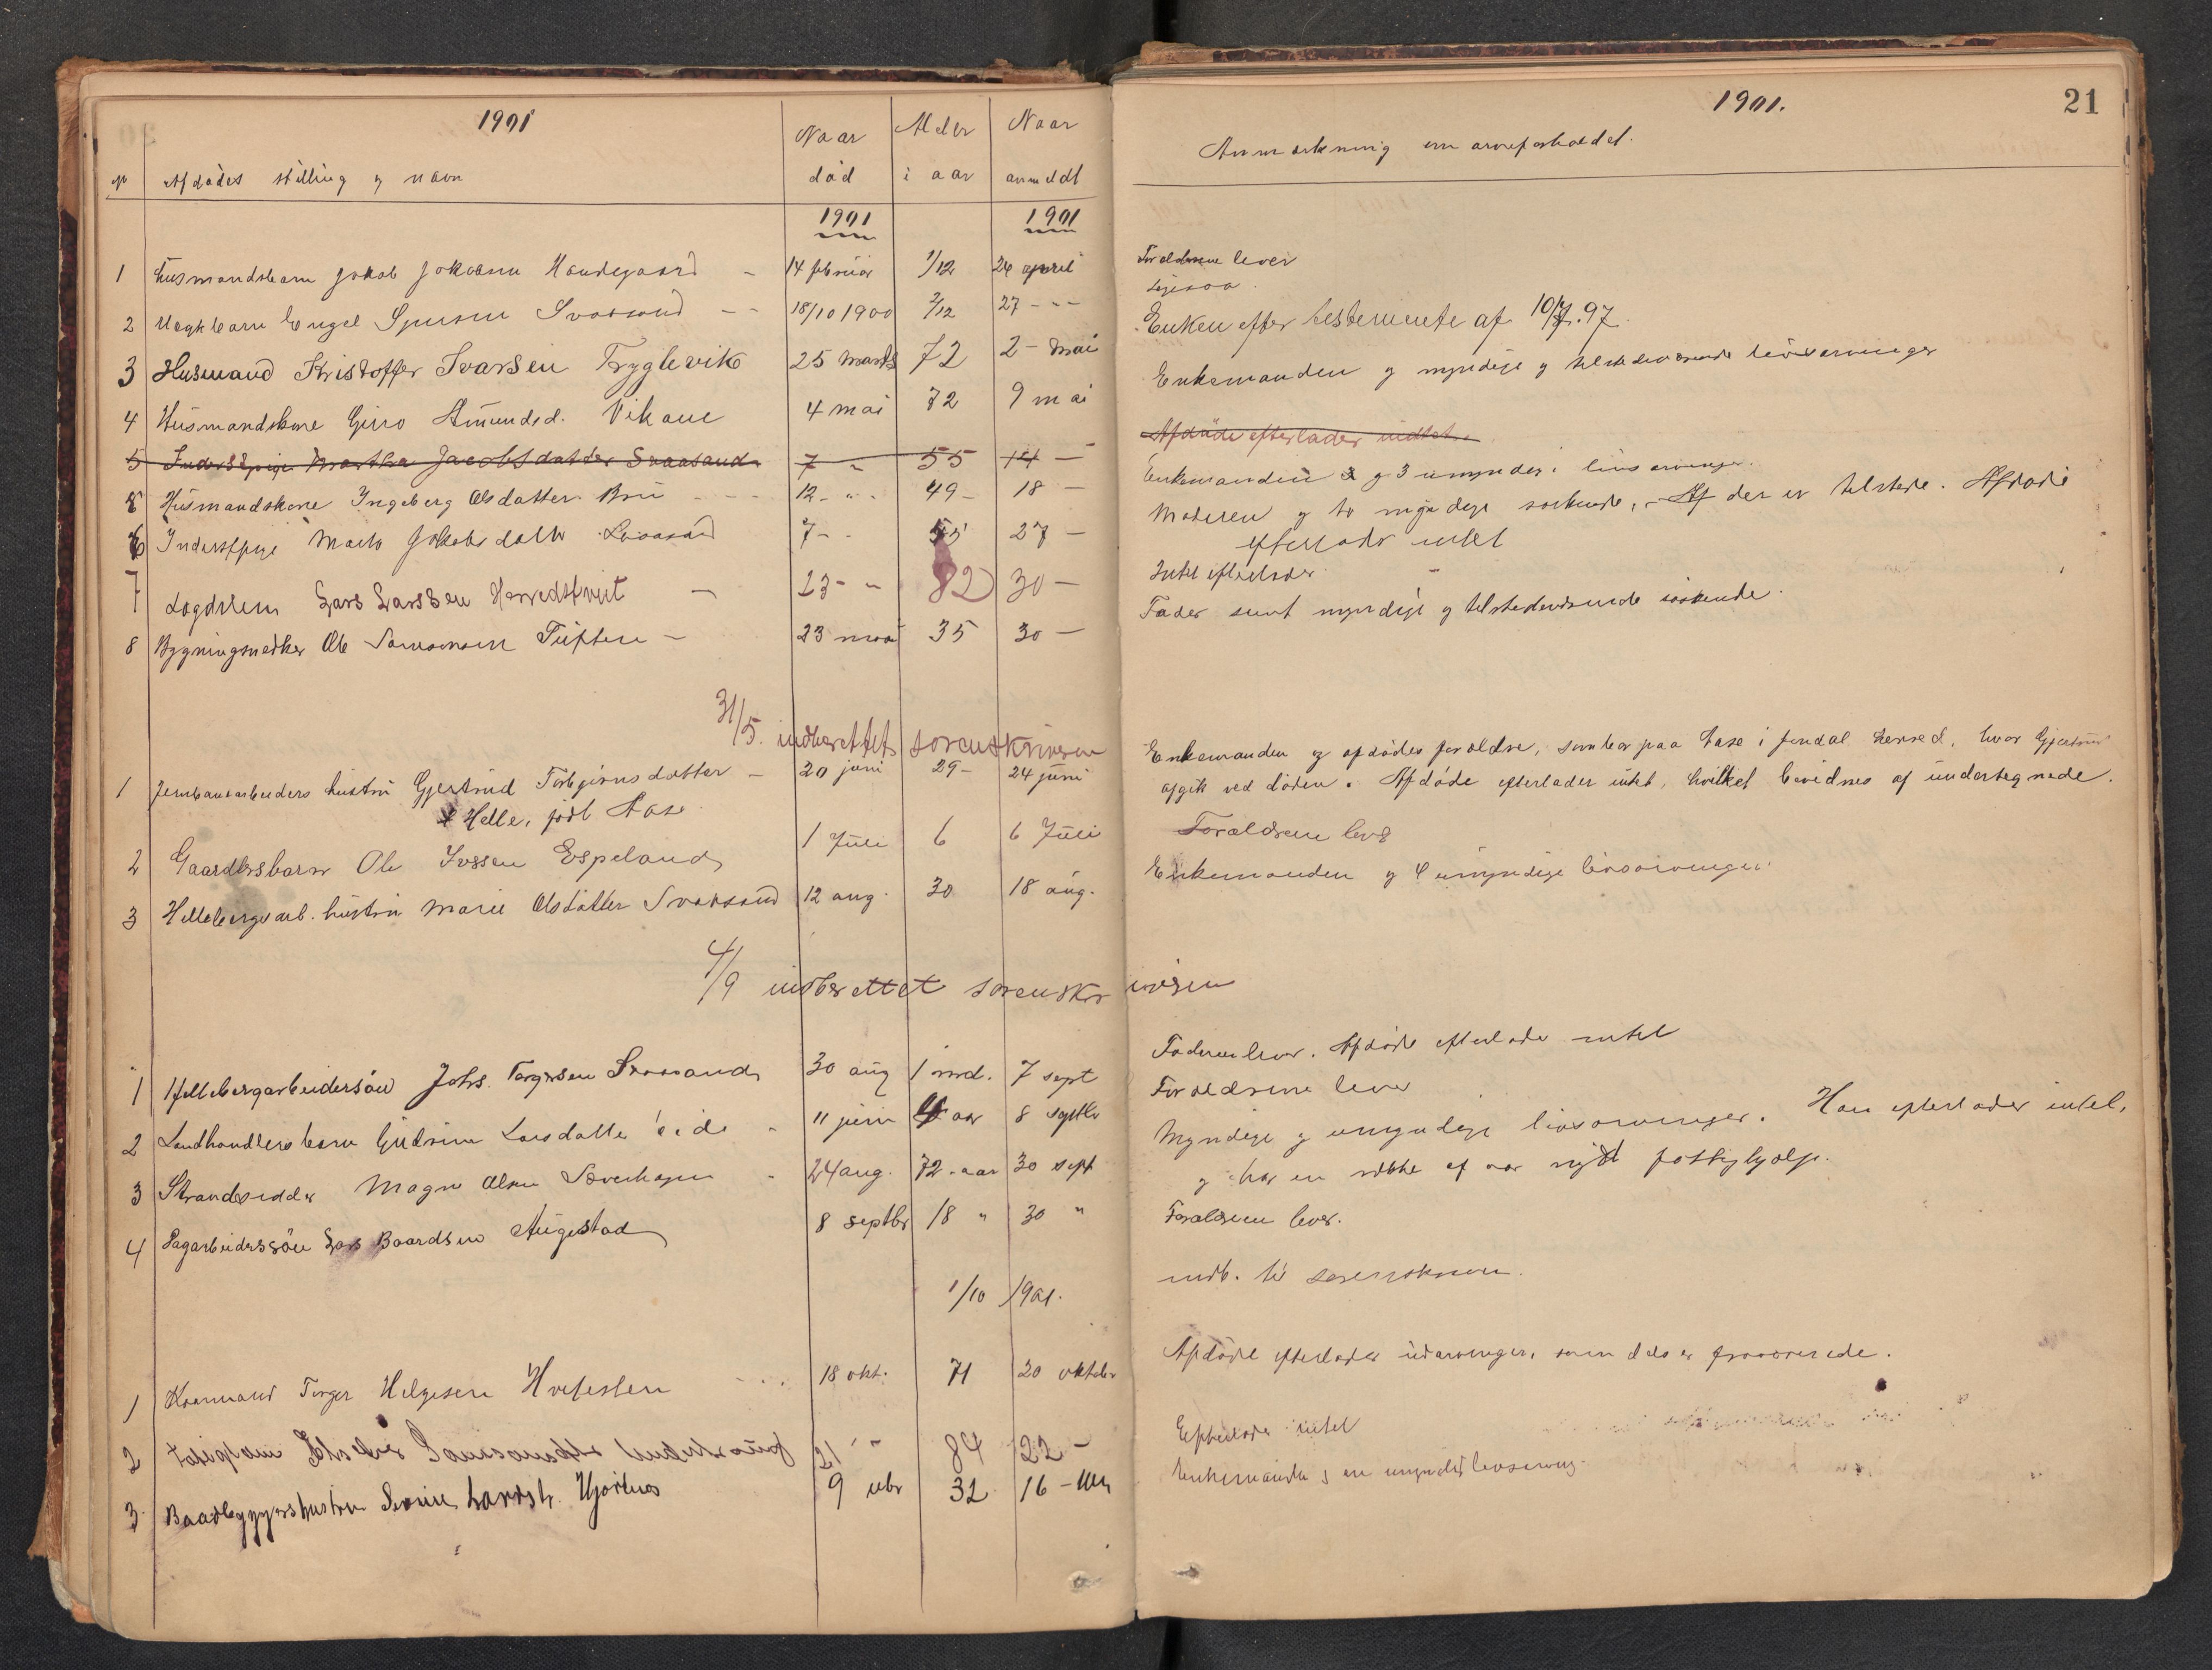 1901
No Afdødes stilling og navn Naar død Alder i aar Naar anmeldt
1901 1901
1 Husmandsbarn Jakob Jokobsen Haudegaard - 14 februar 1/12 26 april
2 Engel Svaasand - - 18/10 1900 2/12 27 - " -
3 Husmand Kristoffer Ivarsen Tryglevik 25 marts 72 2 - mai
4 Husmandskone Giro Amundsd. Vikane 4 mai 72 9 mai
5 Inderstpige Martha Jacobsdatter Svaasand 7 " 55 14 -
5 Husmandskone Ingeborg Olsdatter Brü - - - 12 - " - 49 - 18 -
6 Inderstpige Marta Jakobsdatter Svaasand 7 - - 55 27 -
7 Lægdslem Lars Larssen Herredstveit - 23 - " 82 30 -
8 Bygningsnedker Ole Samsonsen Tüften - 23 mai 35 30 -
31/5. indberettet sorenskriveren
1 Jernbanearbeiders hustru Gjertrud Torbjørnsdatter - 20 juni 29 - 24 juni
Helle, født Aase
2 Gaardbrsbarn Ole Ivssen Espeland 1 Juli 6 6 Juli
3 Hellebergsarb. hustru Marie Olsdatter Svaasand 12 aug. 30 18 aug.
4/9 indberettet sorenskriveren
1 Hellebergarbeidersøn Johs. Torgersen Svaasand 30 aug 1 md. 7 sept
2 Landhandlersbarn Gudrun Larsdatter Eide - 11 juni 4 aar 8 septbr
3 Strandsidder Magne Olsen - 24 aug. 72 - aar 30 sept
4 Sagarbeiderssøn Lars Baardsen Augestad 8 septbr 18 " 30 "
1/10 1901.
1 Kaarmand Torger Helgesen Hvitesten - - - 18 okt. 71 20 oktober
2 Fatiglem Samsonsdtr 21 ' " 84 22 -
3. Baadbyggerhustru Larsdtr. Hjortnes 9 nbr 32 16 - nbr
1901. 21
Anmærkning om arveforholdet.
Forældrene lever
Ligesaa.
Enken efter testemente af 10/7.97.
Enkemanden og myndige og tilstedeværende livsarvinger
Afdøde efterlader indtet.
Enkemanden og 3 umyndige livsarvinger.
Moderen og to myndige søskende, der er tilstede. Afdøde
efterlader intet
Intet efterlader
Fader samt myndige og tilstedeværende søskende.
Enkemanden og afdødes forældre, som bor paa Aase i Jondal herred, hvor Gjertrud
afgik ved døden. Afdøde efterlader intet, hvilket bevidnes af undertegnede.
Forældrene lever
Enkemanden og 4 umyndige livsarvinger
Faderen lever. Afdøde efterlader intet
Forældrene lever
Myndige og umyndige livsarvinger. Han efterlader intet,
og har en række af aar nydt fattighjælp.
Forældrene lever.
indb. til sorenskriveren.
Afdøde efterlader udarvinger, som dels er fraværende.
Efterlader intet
Enkemanden og en umyndig livsarving.